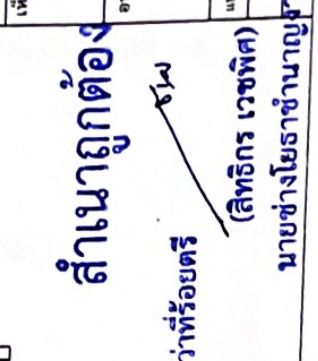 สำเนาถูกต้อง
ว่าที่ร้อยตรี
(สิทธิกร เวชพิศ)
นายช่างโยธาชำนาญง